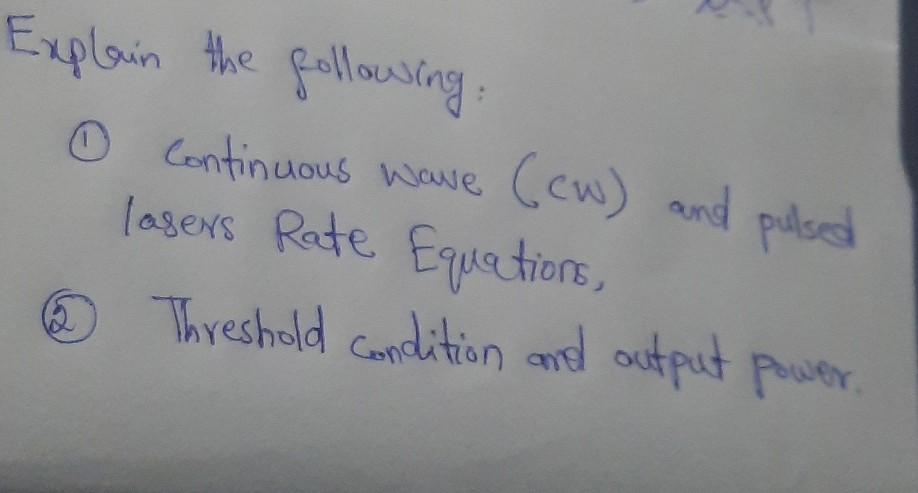 Explain the following:
① Continuous wave (CW) and pulsed
lasers Rate Equations,
② Threshold condition and output power.